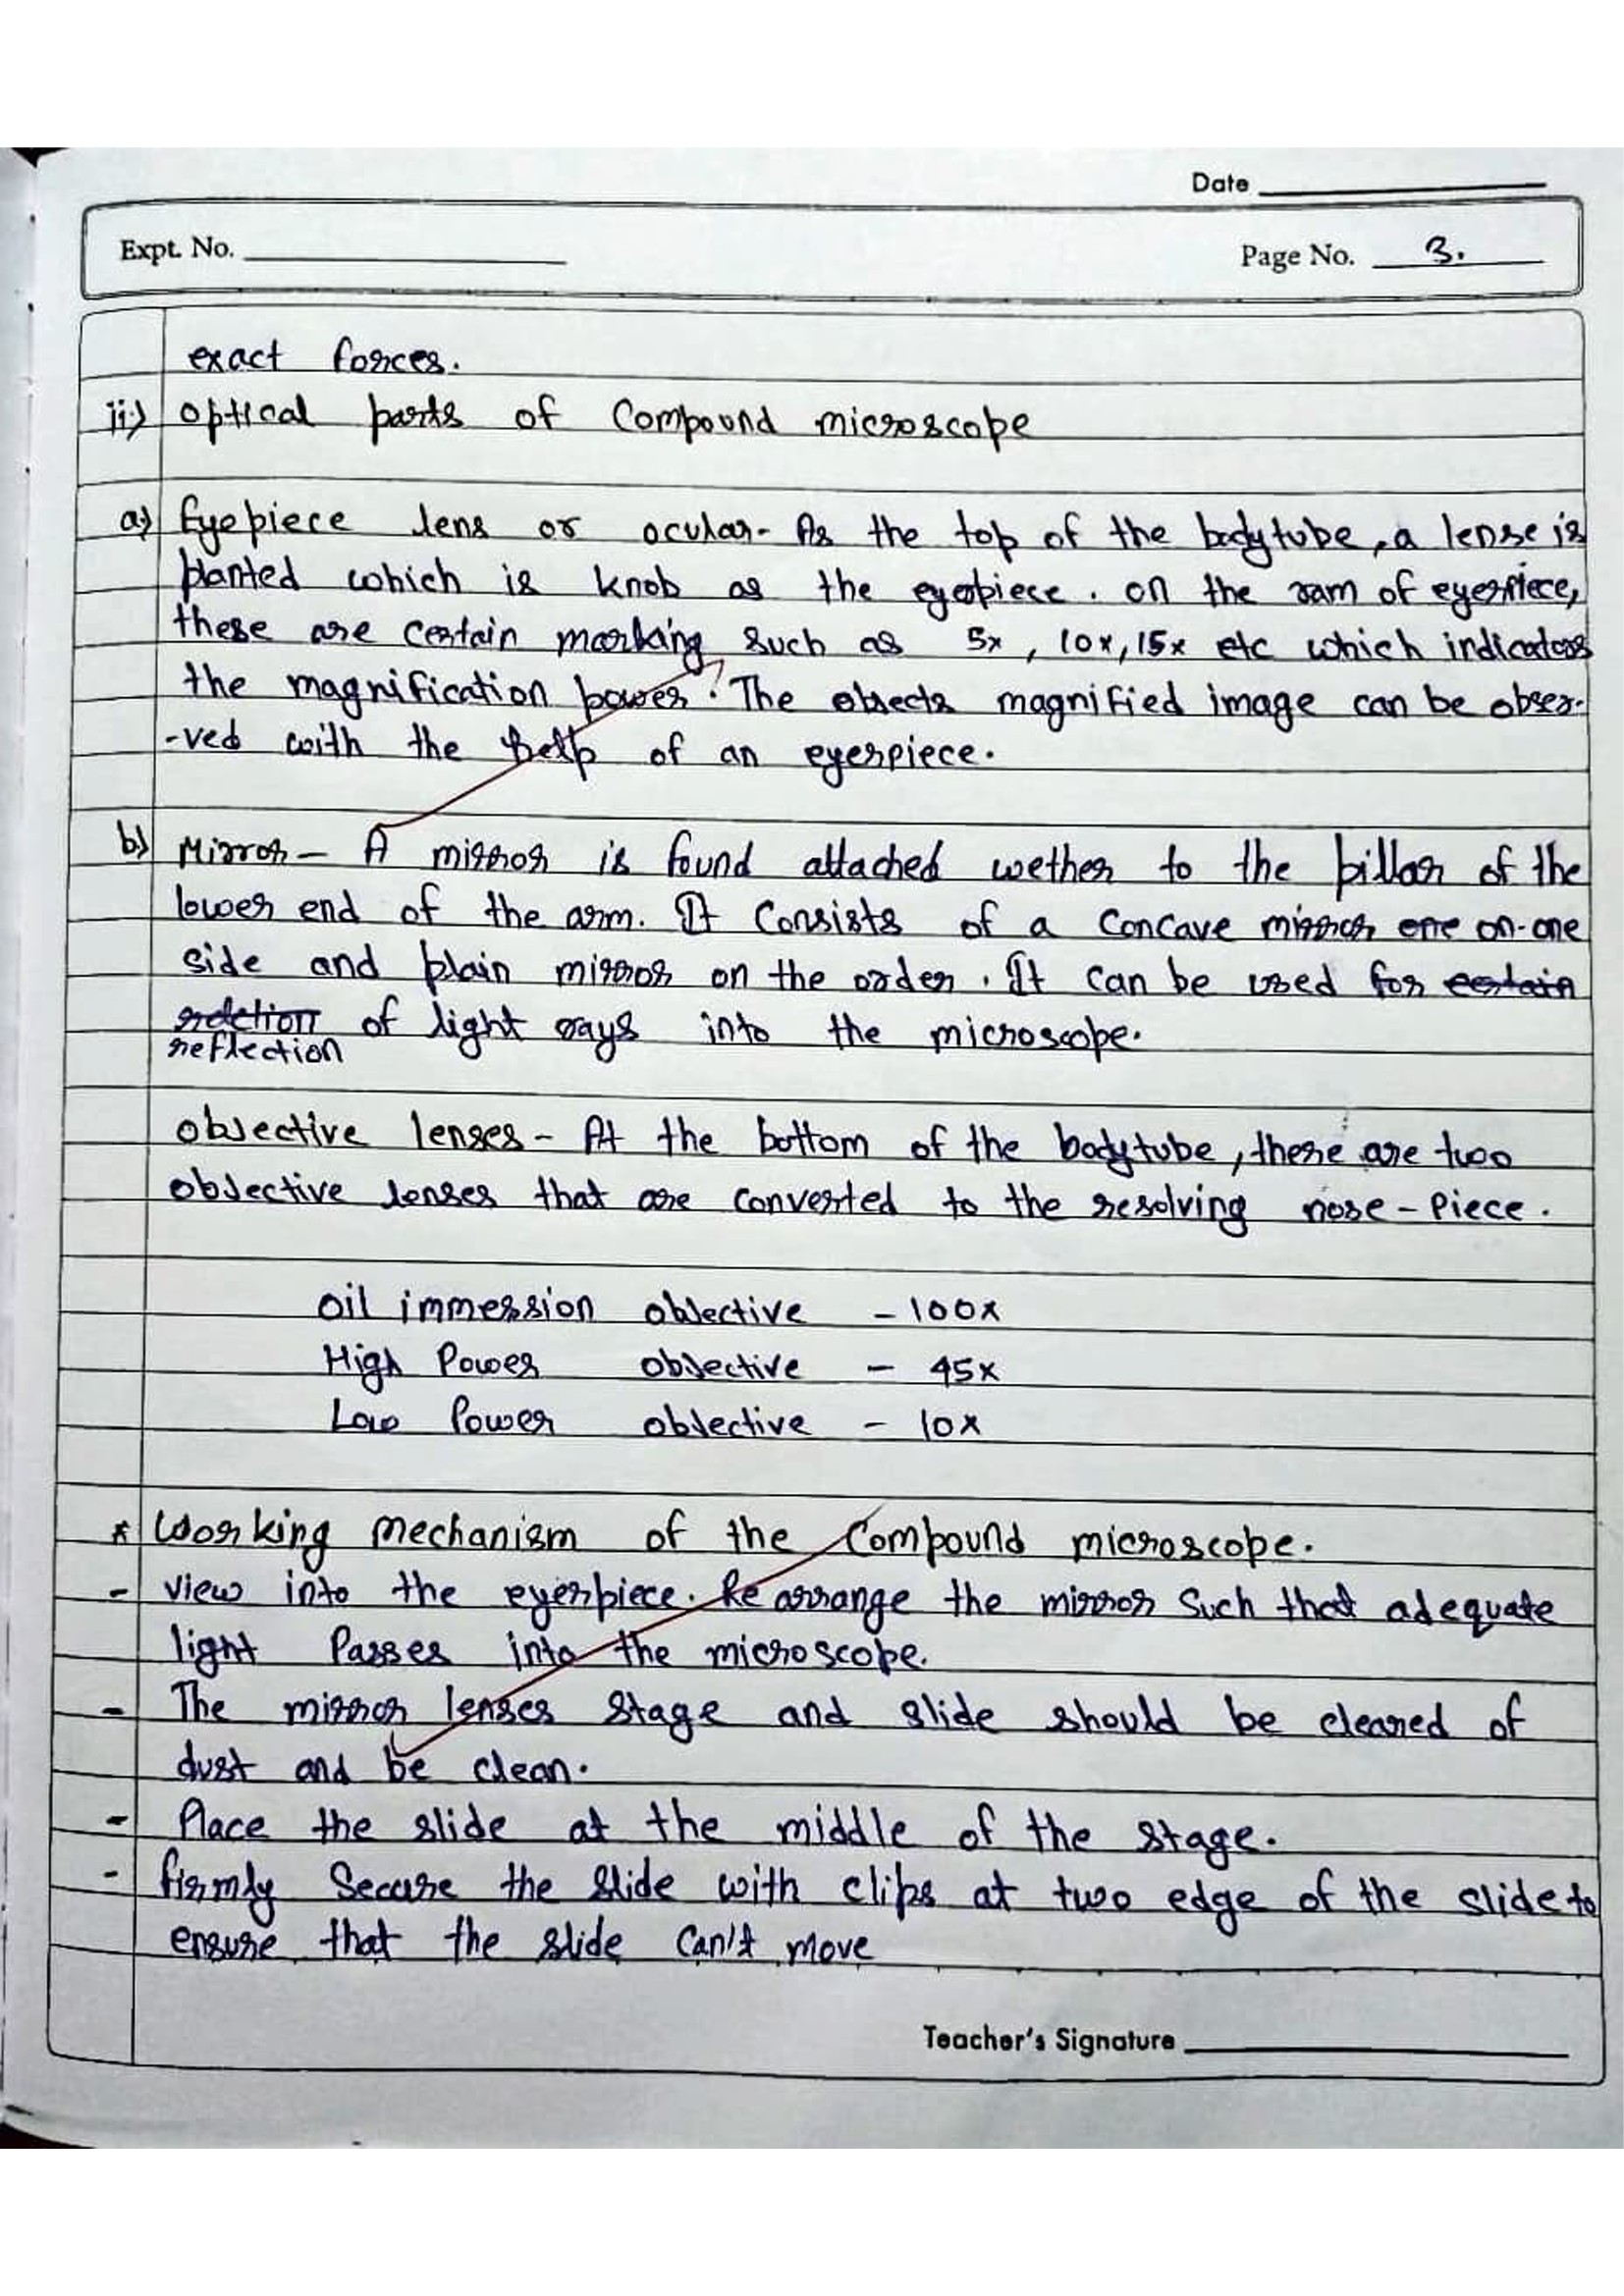 Date
Expt. No.
Page No. 3.
exact forces.
ii) optical parts of Compound microscope
a) Eyepiece lens or ocular- As the top of the bodytube, a lense is
planted which is knob as the eyepiece. on the ram of eyerpiece,
these are certain marking such as 5x, 10x, 15x etc which indicators
the magnification power. The objects magnified image can be obser-
-ved with the help of an eyerpiece.
b) Mirror- A mirror is found attached wether to the pillar of the
lower end of the arm. It Consists of a Concave mirror one on-one
side and plain mirror on the order. It can be used for certain
of light rays into the microscope.
reflection
objective lenses - At the bottom of the bodytube, there are two
objective lenses that are converted to the resolving nose-piece.
Oil immession objective - 100x
High Power objective - 45x
Low Power objective - 10x
* Working mechanism of the Compound microscope.
- view into the eyerpiece. Re arrange the mirror Such that adequate
light Passes into the microscope.
- The mirror lenses stage and slide should be cleared of
dust and be clean.
- Place the slide at the middle of the stage.
- firmly Secure the slide with clips at two edge of the slide to
ensure that the slide can't move
Teacher's Signature